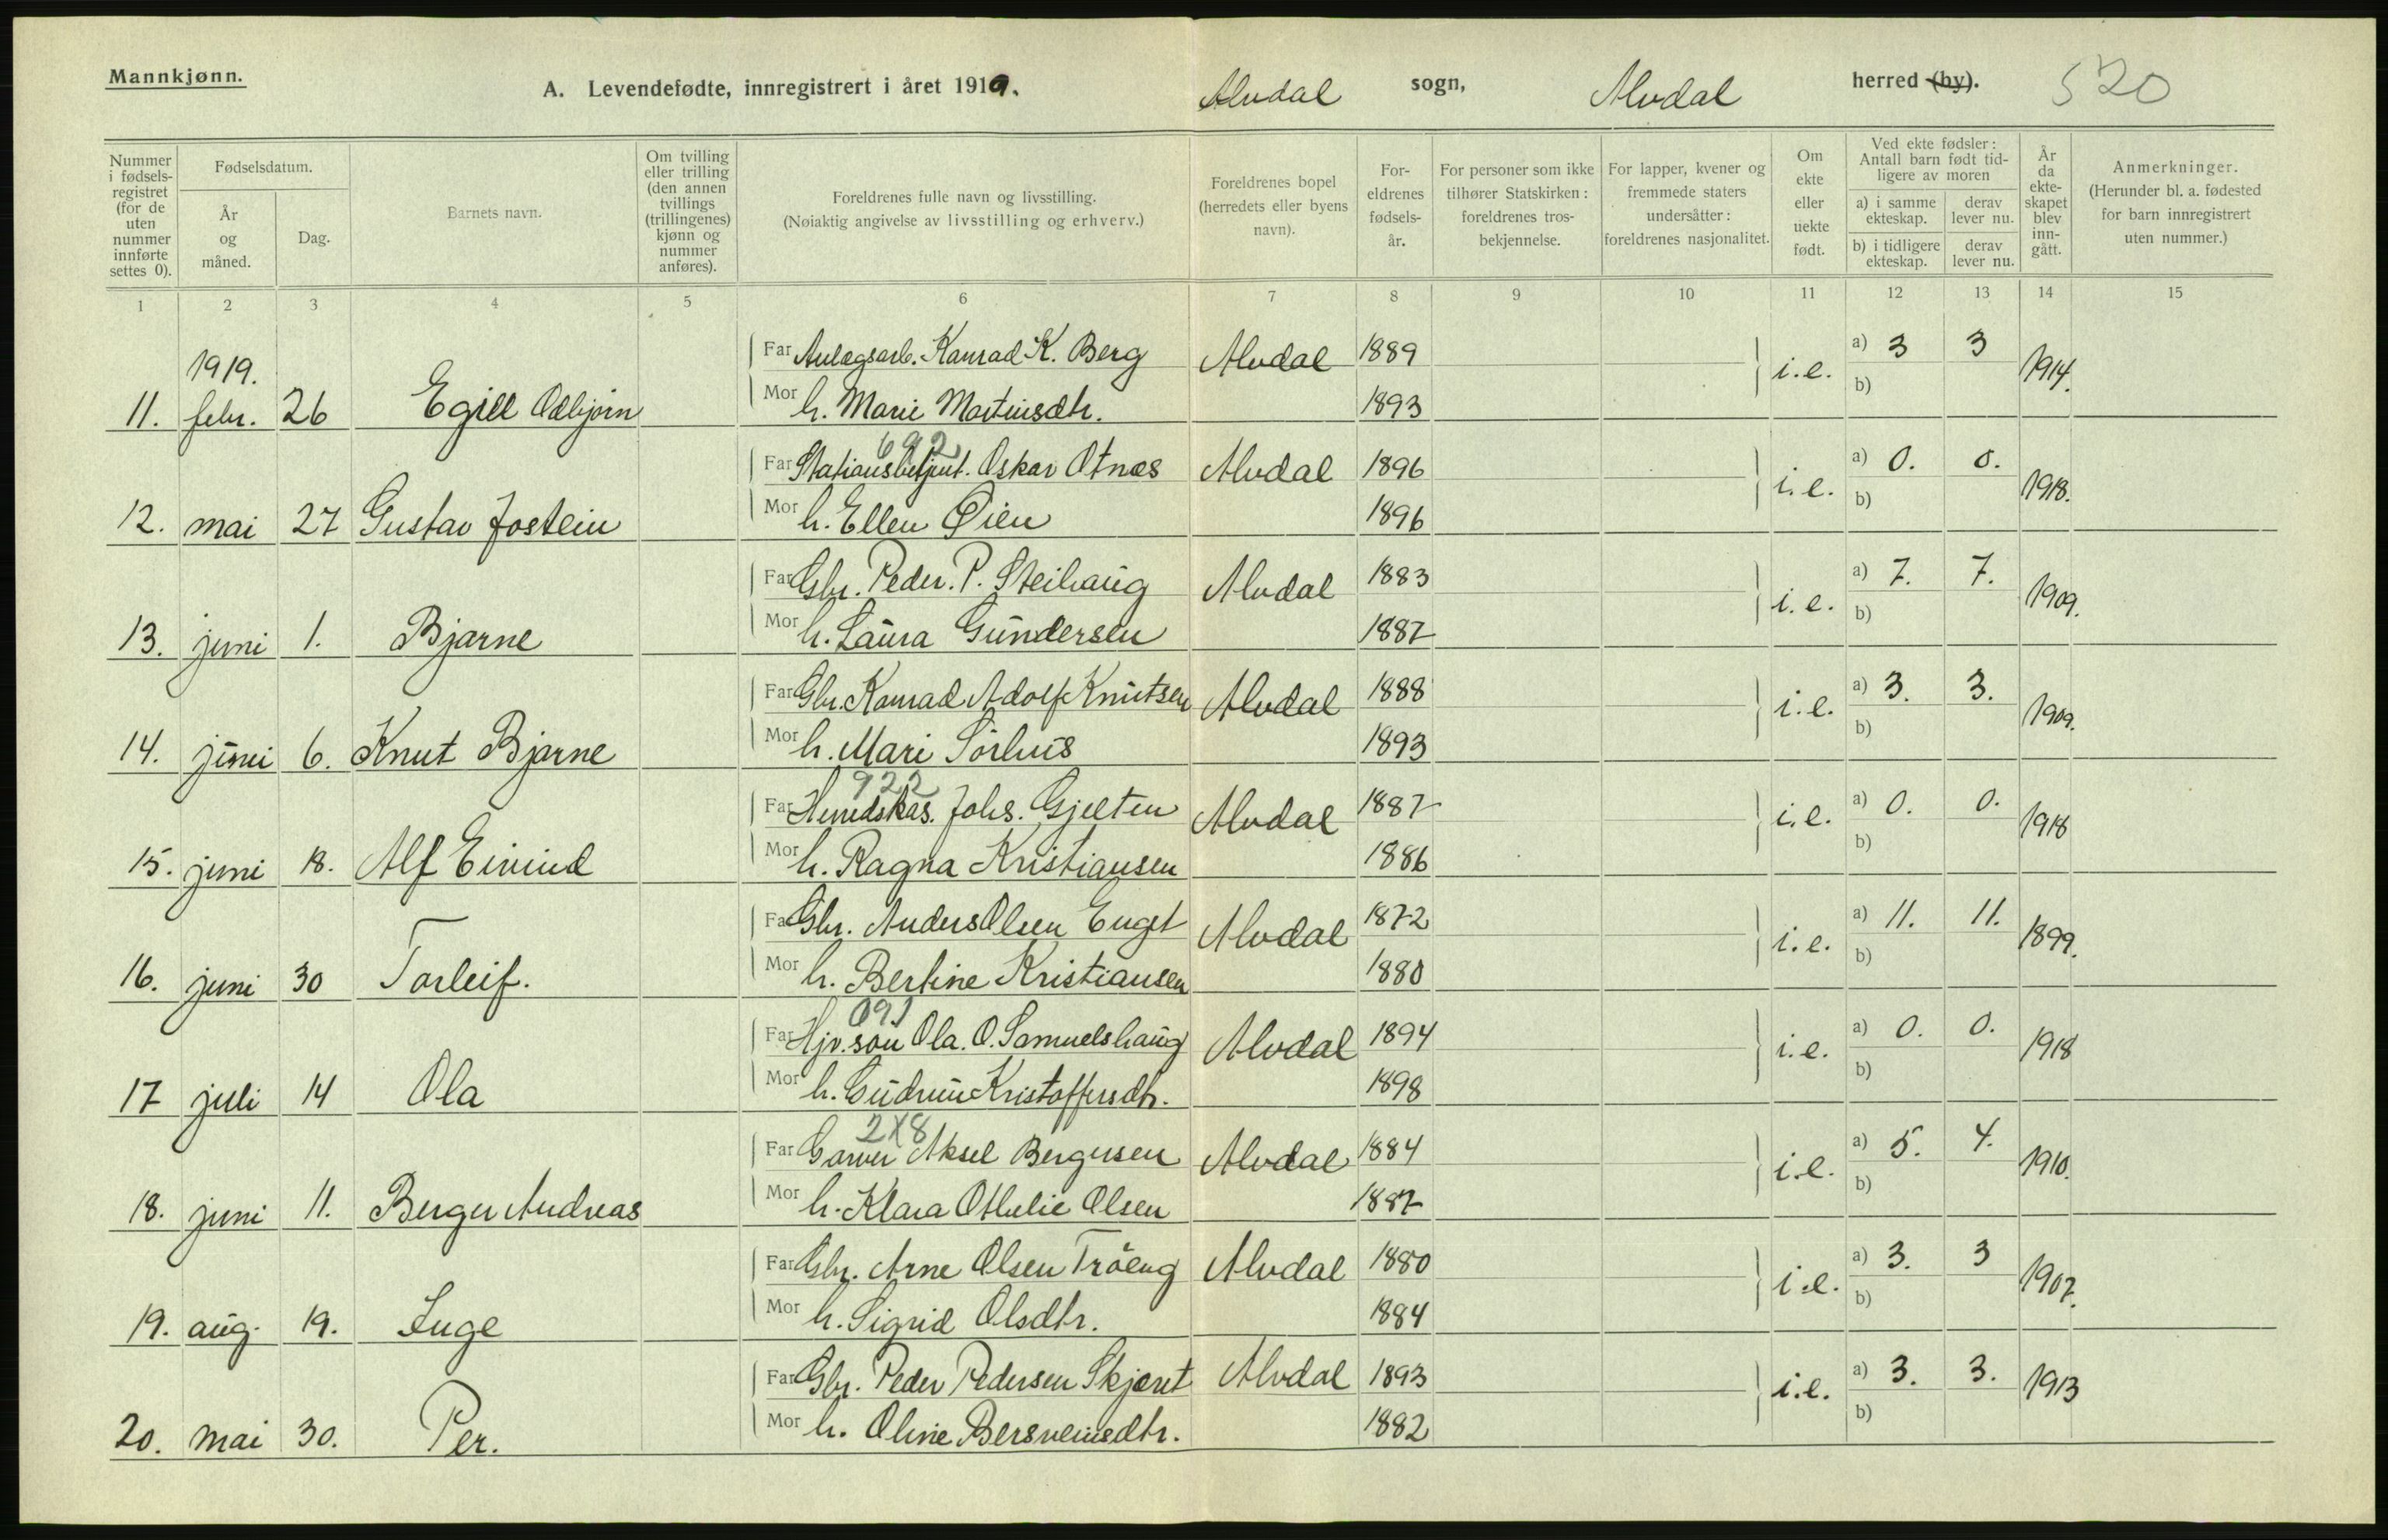 Mannkjønn.
A. Levendefødte, innregistrert i året 1919. Alvdal sogn, Alvdal herred (by). 520
Nummer i fødsels-registret (for de uten nummer innførte settes 0).
Fødselsdatum.
År og måned.
Dag.
Barnets navn.
Om tvilling eller trilling (den annen tvillings (trillingenes) kjønn og nummer anføres).
Foreldrenes fulle navn og livsstilling.
(Nøiaktig angivelse av livsstilling og erhverv.)
Foreldrenes bopel (herredets eller byens navn).
For-eldrenes fødsels-år.
For personer som ikke tilhører Statskirken: foreldrenes tros-bekjennelse.
For lapper, kvener og fremmede staters undersåtter: foreldrenes nasjonalitet.
Om ekte eller uekte født.
Ved ekte fødsler: Antall barn født tid-ligere av moren
a) i samme ekteskap.
derav lever nu.
b) i tidligere ekteskap.
derav lever nu.
År da ekte-skapet blev inn-gått.
Anmerkninger.
(Herunder bl. a. fødested for barn innregistrert uten nummer.)
1 2 3 4 5 6 7 8 9 10 11 12 13 14 15
1919.
Far Anlægsarb. Konrad K. Berg Alvdal 1889 a) 3 3
11. febr. 26 Egill Odbjørn Mor h. Marie Martinsdtr. 1893 i.e. b) 1914.
692
Far Stationsbetjent. Oskar Otnæs Alvdal 1896 a) 0. 0.
12. mai 27 Gustav Jostein Mor h. Ellen Øien 1896 i.e. b) 1918.
Far Gbr. Peder. P. Steihaug Alvdal 1883 a) 7. 7.
13. juni 1. Bjarne Mor h. Laura Gundersen 1887 i.e. b) 1909.
Far Gbr. Konrad Adolf Knutsen Alvdal 1888 a) 3. 3.
14. juni 6. Knut Bjarne Mor h. Mari Sørhus 1893 i.e. b) 1909.
922
Far Herredskas. Johs. Gjelten Alvdal 1887 a) 0. 0.
15. juni 18. Alf Eivind Mor h. Ragna Kristiansen 1886 i.e. b) 1918
Far Gbr. Anders Olsen Enget Alvdal 1872 a) 11. 11.
16. juni 30 Torleif. Mor h. Bertine Kristiansen 1880 i.e. b) 1899.
091
Far Hjv. søn Ola. O. Samuelshaug Alvdal 1894 a) 0. 0.
17 juli 14 Ola Mor h. Gudrun Kristoffersdtr. 1898 i.e. b) 1918
2X8
Far Garver Aksel Bergersen Alvdal 1884 a) 5. 4.
18. juni 11. Berger Andreas Mor h. Klara Othelie Olsen 1887 i.e. b) 1910.
Far Gbr. Arne Olsen Trøeng Alvdal 1880 a) 3. 3
19. aug. 19. Inge Mor h. Sigrid Olsdtr. 1884 i.e. b) 1907.
Far Gbr. Peder Pedersen Skjæret Alvdal 1893 a) 3. 3.
20. mai 30. Per. Mor h. Oline Bersveinsdtr. 1882 i.e. b) 1913